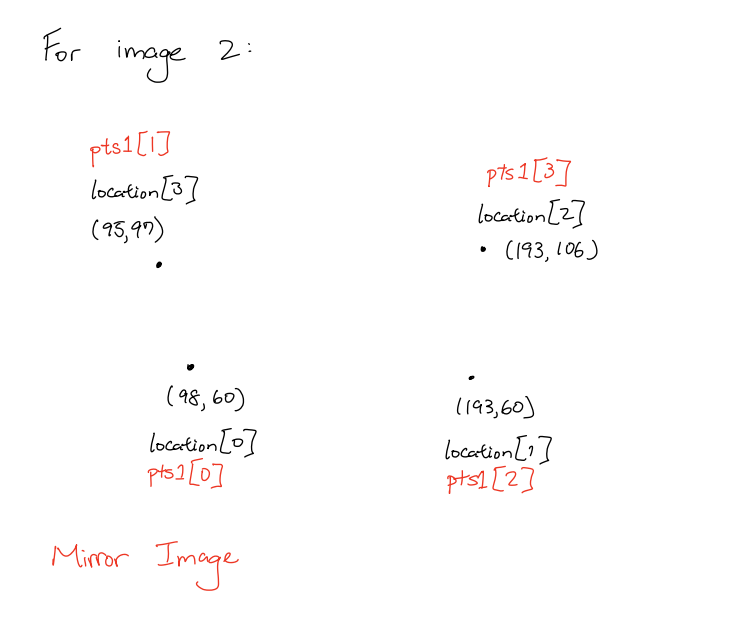 For image 2:
pts1[1]
location[3]
(95,97)
pts1[3]
location[2]
(193, 106)
(98, 60)
location[0]
pts1[0]
(193,60)
location[1]
pts1[2]
Mirror Image